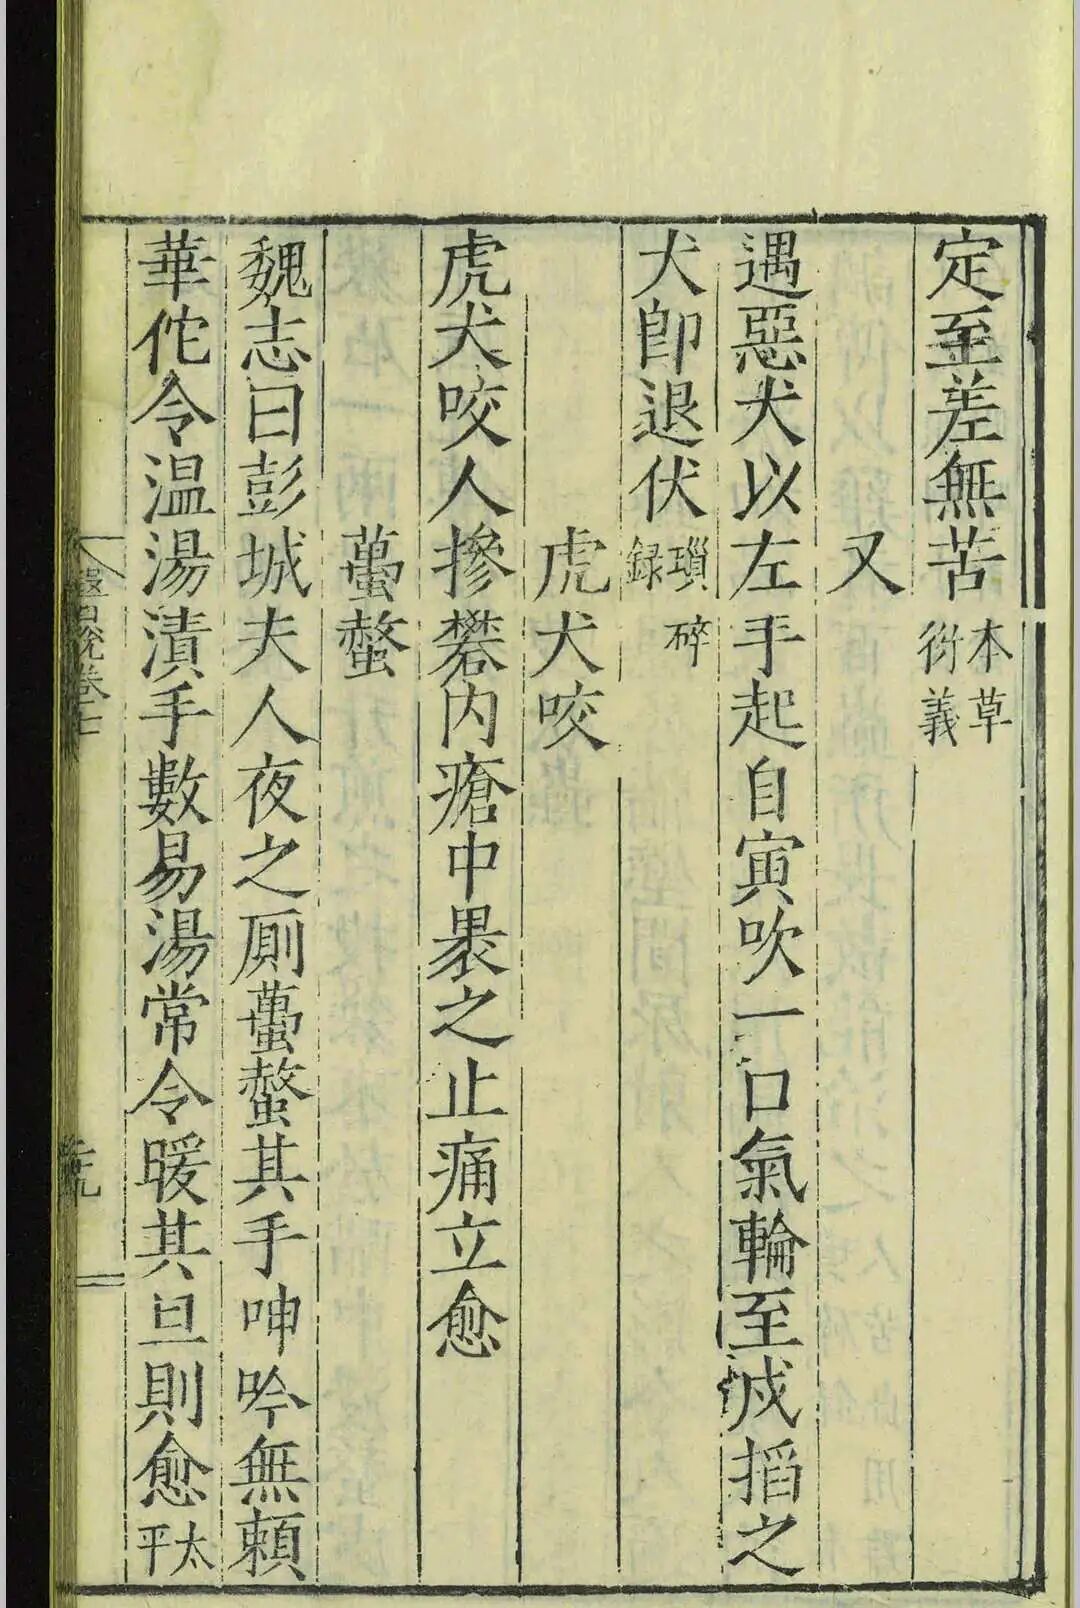 定至差無苦本草衍義
又
遇惡犬以左手起自寅吹一口氣輪至戌搯之
犬卽退伏瑣碎録
虎犬咬
虎犬咬人摻礬内瘡中裹之止痛立愈
蠆螫
魏志曰彭城夫人夜之厠蠆螫其手呻吟無賴
華佗令温湯漬手數易湯常令暖其旦則愈太平
醫説卷七
二十九